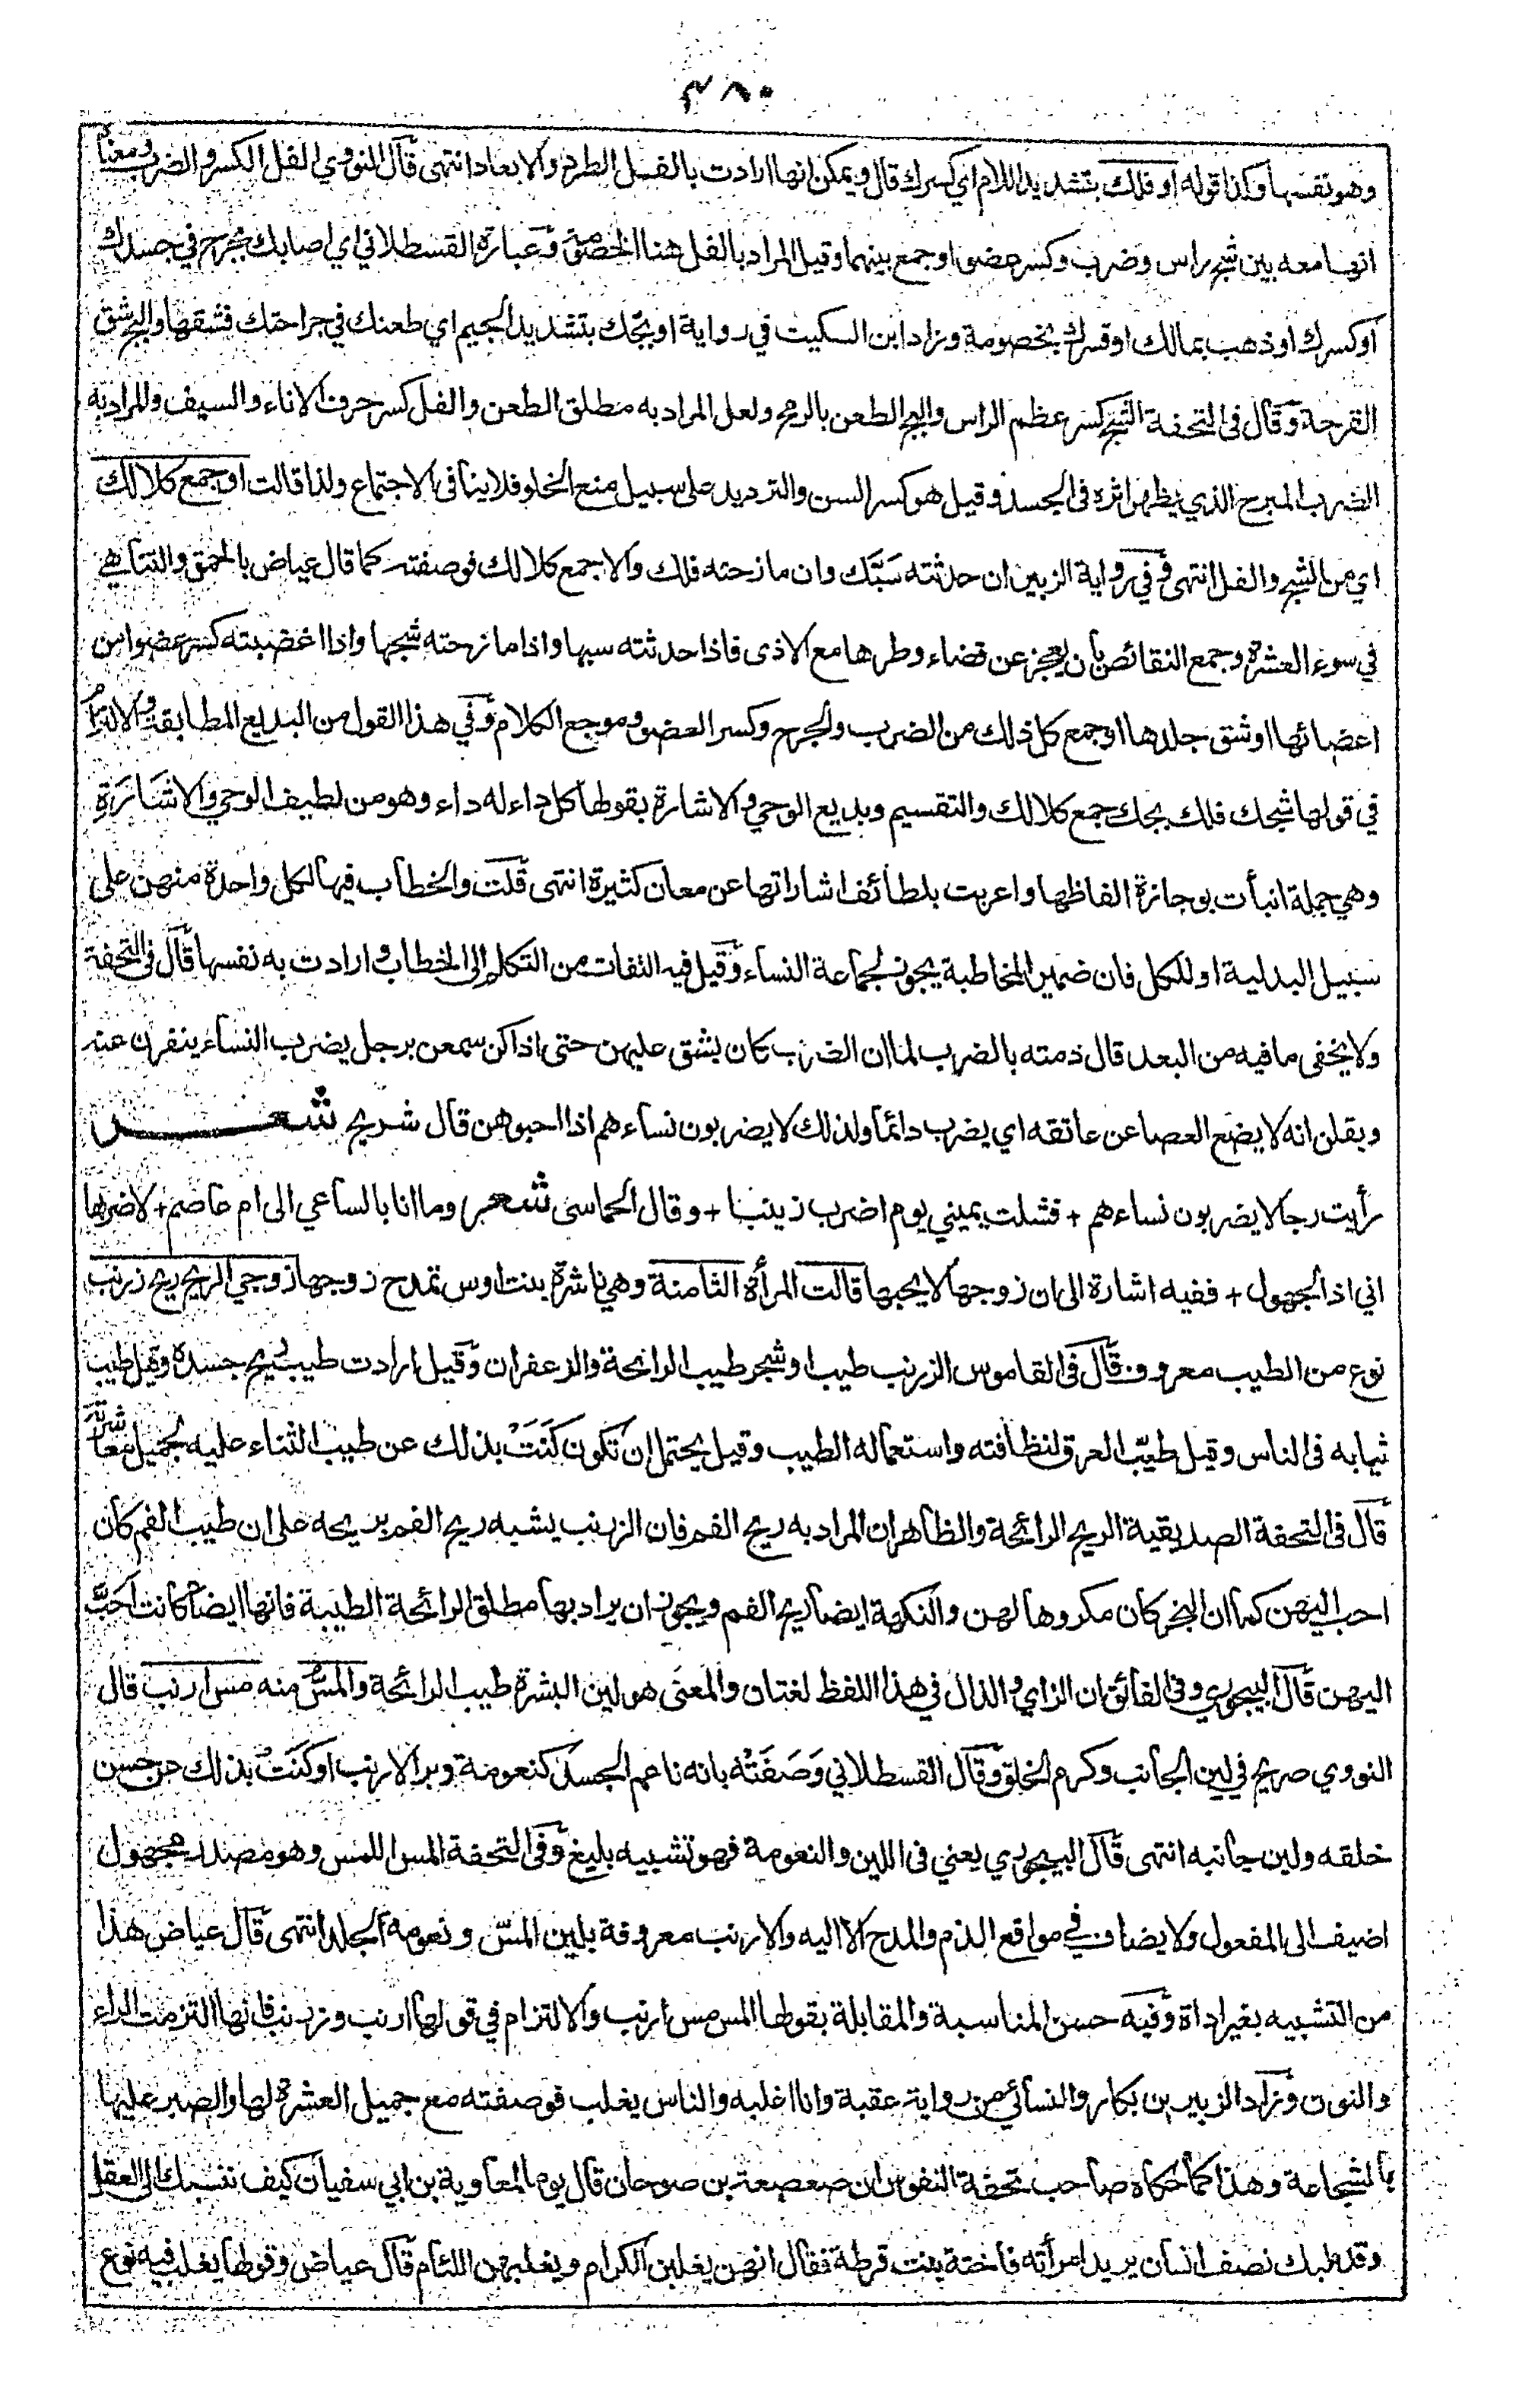 ٣٨٠
وهو نفسها وكذا قوله او فلك بتشديد اللام اي كسرك قال ويمكن انها ارادت بالفل الطرد والابعاد انتهى قال النووي الفل الكسر والضرب ومعناه
انها معه بين شج راس وضرب وكسر عضو او جمع بينهما وقيل المراد بالفل هنا الخصومة وعبارة القسطلاني اي اصابك بجرح في جسدك
او كسرك او ذهب بمالك او قسرك بخصومة وزاد ابن السكيت في رواية او بجك بتشديد الجيم اي طعنك في جراحتك فشقها والبج شق
القرحة وقال في التحفة الشج كسر عظم الراس والبج الطعن بالرمح ولعل المراد به مطلق الطعن والفل كسر حرف الاناء والسيف والمراد به
الضرب المبرح الذي يظهر اثره في الجسد وقيل هو كسر السن والترديد على سبيل منع الخلو فلا ينافي الاجتماع ولذا قالت او جمع كلا لك
اي من الشج والفل انتهى وفي رواية الزبير ان حدثته سَبَّك وان مازحته فلك والا جمع كلا لك فوصفته كما قال عياض بالحمق والتناهي
في سوء العشرة وجمع النقائص بان يعجز عن قضاء وطرها مع الاذى فاذا حدثته سبها واذا مازحته شجها واذا اغضبته كسر عضوا من
اعضائها او شق جلدها او جمع كل ذلك من الضرب والجرح وكسر العضو وموجع الكلام وفي هذا القول من البديع المطابقة والالتزام
في قولها شجك فلك بجك جمع كلا لك والتقسيم وبديع الوحي والاشارة بقولها كل داء له داء وهو من لطيف الوحي والاشارة
وهي جملة انبأت بوجازة الفاظها واعربت بلطائف اشاراتها عن معان كثيرة انتهى قلت والخطاب فيها لكل واحدة منهن على
سبيل البدلية او للكل فان ضمير المخاطبة يجوز لجماعة النساء وقيل فيه التفات من التكلم الى الخطاب وارادت به نفسها قال في التحفة
ولا يخفى ما فيه من البعد قال ذمته بالضرب لما ان الضرب كان يشق عليهن حتى اذا كن سمعن برجل يضرب النساء ينفرن عنه
ويقلن انه لا يضع العصا عن عاتقه اي يضرب دائما ولذلك لا يضربون نساءهم اذا احبوهن قال شريح شعر
رأيت رجالا يضربون نساءهم + فشلت يميني يوم اضرب زينبا + وقال الحماسي شعر وما انا بالساعي الى ام عاصم + لاضربها
اني اذا لجهول + ففيه اشارة الى ان زوجها لا يحبها قالت المرأة الثامنة وهي ناشرة بنت اوس تمدح زوجها زوجي الريح ريح زرنب
نوع من الطيب معروف قال في القاموس الزرنب طيب او شجر طيب الرائحة والزعفران وقيل ارادت طيب ريح جسده وقيل طيب
ثيابه في الناس وقيل طيب العرق لنظافته واستعماله الطيب وقيل يحتمل ان تكون كَنَتْ بذلك عن طيب الثناء عليه لجميل معاشرته
قال في التحفة الصديقية الريح الرائحة والظاهر ان المراد به ريح الفم فان الزرنب يشبه ريح الفم بريحه على ان طيب الفم كان
احب اليهن كما ان البخر كان مكروها لهن والنكهة ايضا ريح الفم ويجوز ان يراد بها مطلق الرائحة الطيبة فانها ايضا كانت احَبَّ
اليهن قال البيجوري وفي الفائق ان الزاي والذال في هذا اللفظ لغتان والمعنى هو لين البشرة طيب الرائحة والمسُّ منه مس ارنب قال
النووي صريح في لين الجانب وكرم الخلق وقال القسطلاني وَصَفَتْه بانه ناعم الجسد كنعومة وبر الارنب او كَنَتْ بذلك عن حسن
خلقه ولين جانبه انتهى قال البيجوري يعني في اللين والنعومة فهو تشبيه بليغ وفي التحفة المس اللمس وهو مصدر مجهول
اضيف الى المفعول ولا يضاف في مواقع الذم والمدح الا اليه والارنب معروفة بلين المسّ ونعومة الجلد انتهى قال عياض هذا
من التشبيه بغير اداة وفيه حسن المناسبة والمقابلة بقولها المس مس ارنب والالتزام في قولها ارنب وزرنب فانها التزمت الراء
والنون وزاد الزبير بن بكار والنسائي من رواية عقبة وانا اغلبه والناس يغلب فوصفته مع جميل العشرة لها والصبر عليها
بالشجاعة وهذا كما حكاه صاحب تحفة النفوس ان صعصعة بن صوحان قال يوما لمعاوية بن ابي سفيان كيف ننسبك الى العقل
وقد غلبك نصف انسان يريد امرأته فاختة بنت قرظة فقال انهن يغلبن الكرام ويغلبهن اللئام قال عياض وقولها يغلب فيه نوع